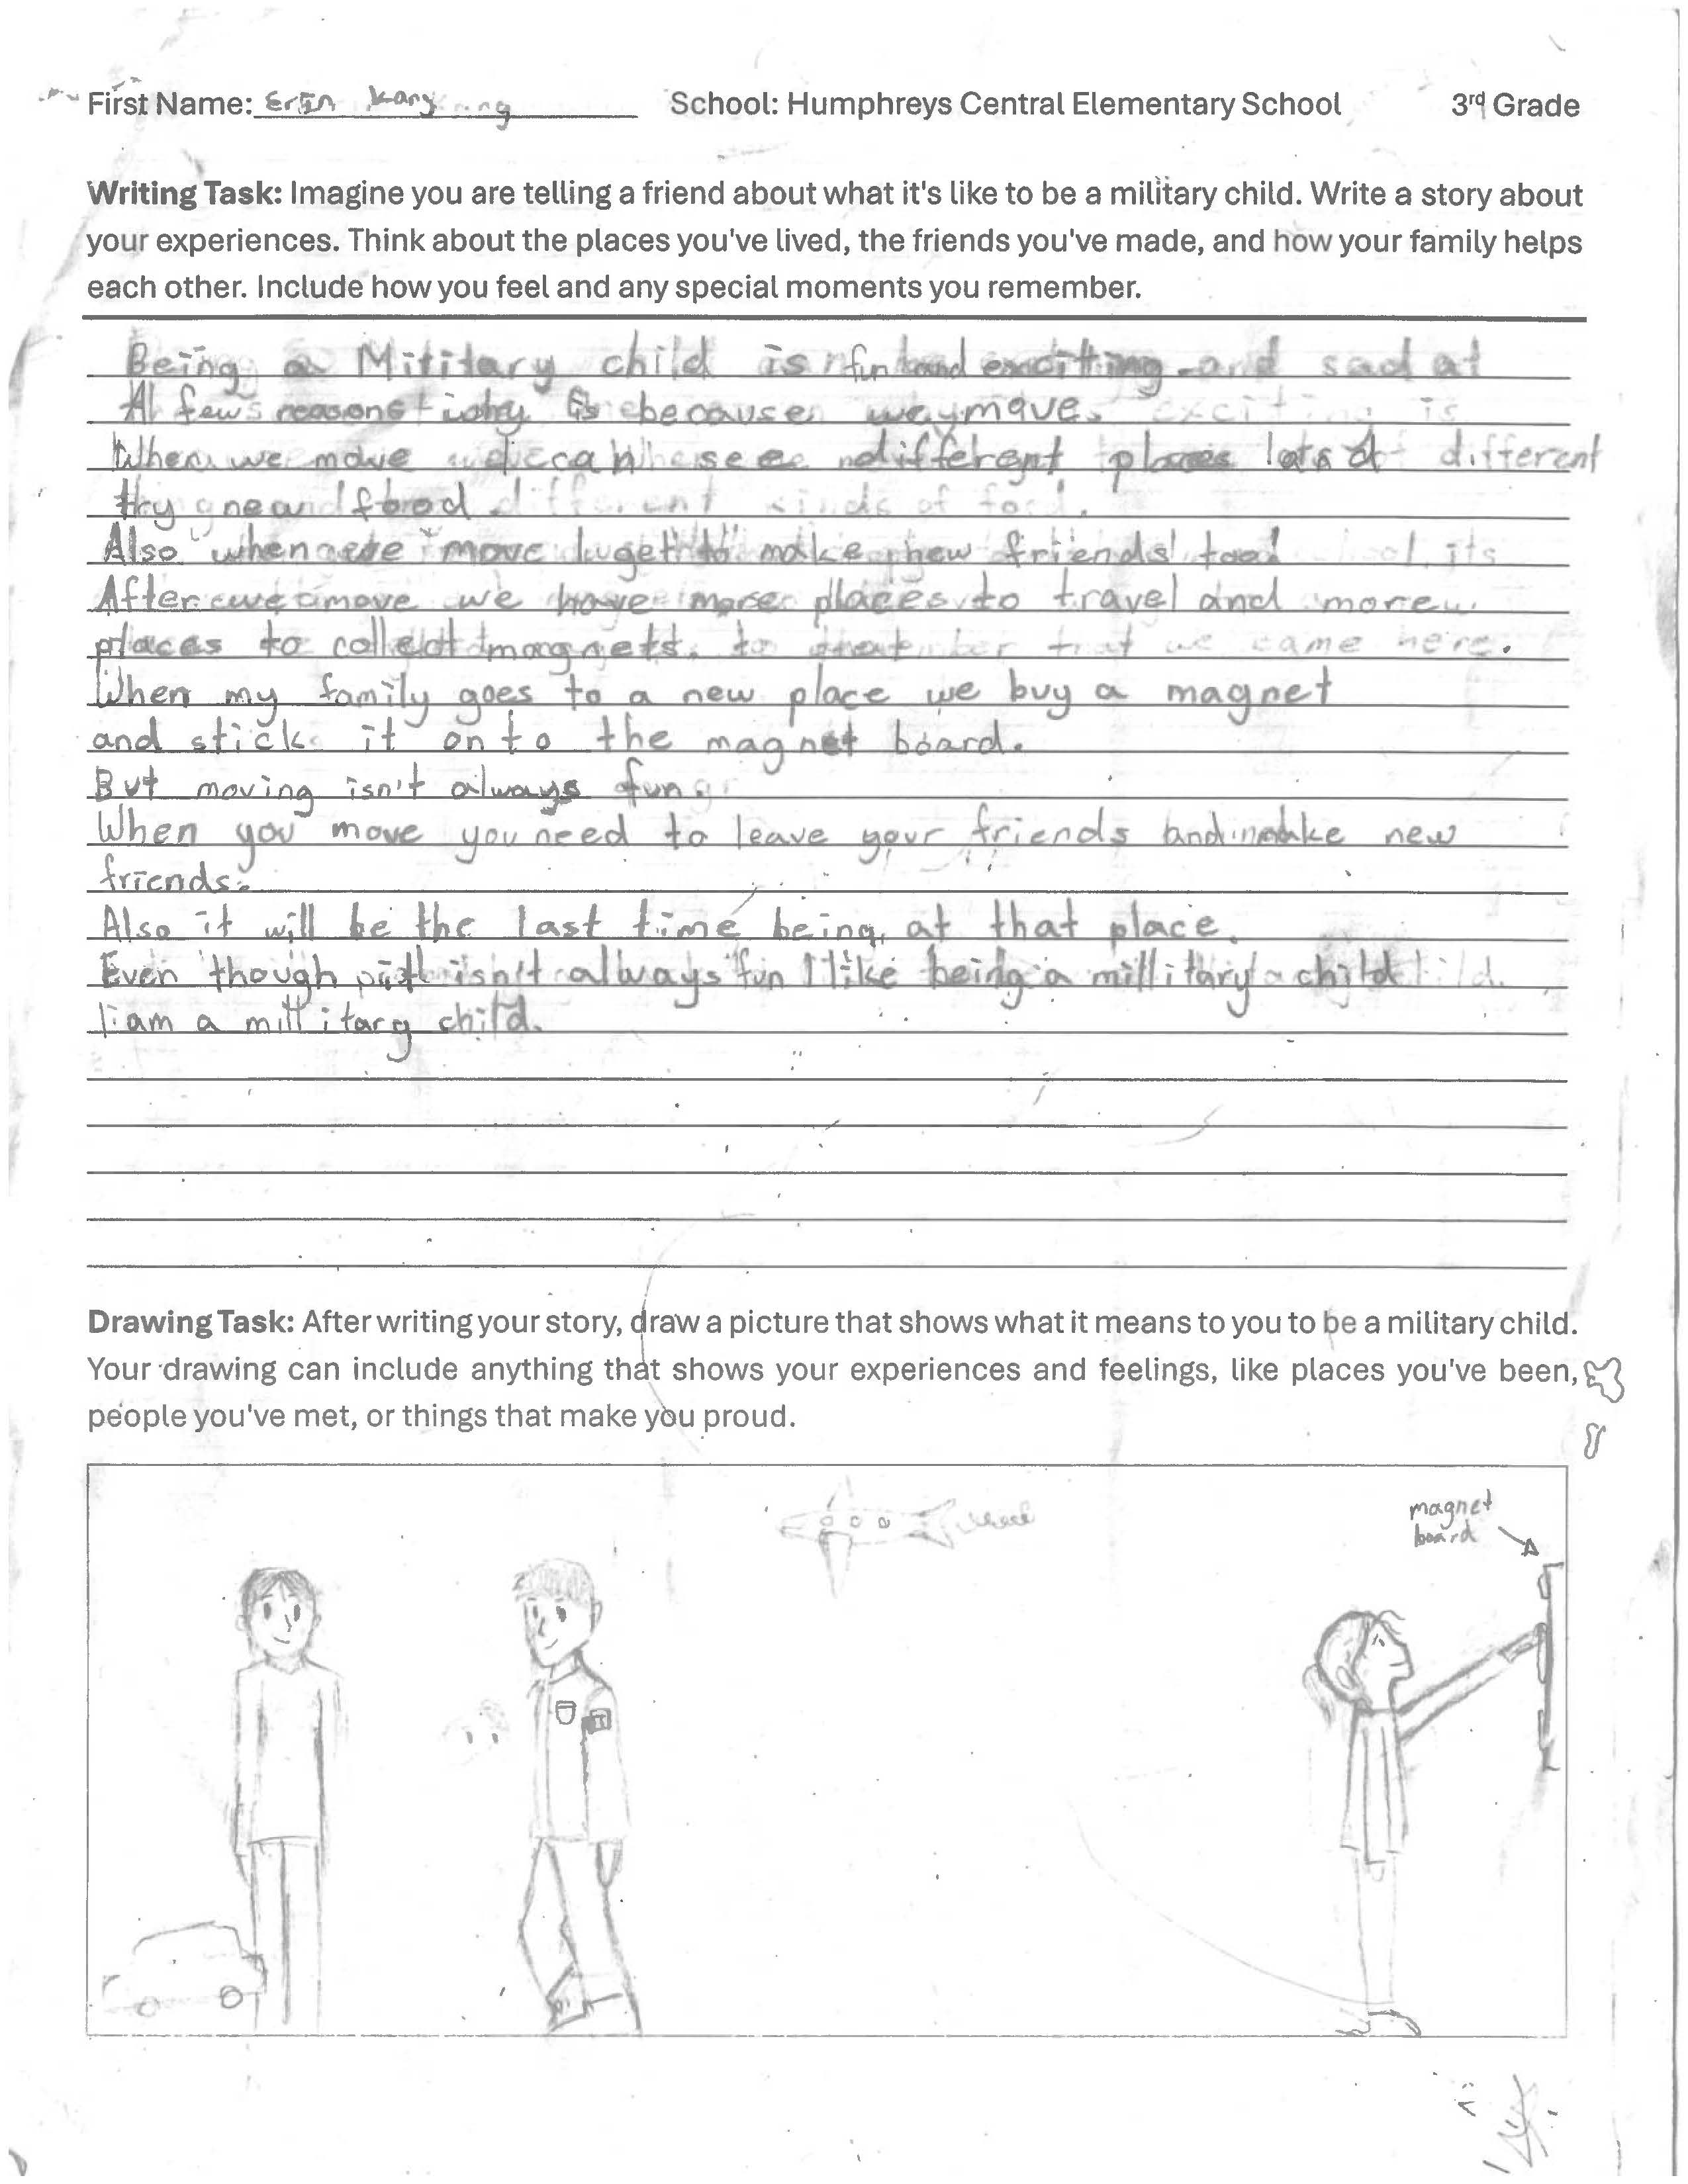 First Name: Erin Kang School: Humphreys Central Elementary School 3rd Grade
Writing Task: Imagine you are telling a friend about what it's like to be a military child. Write a story about
your experiences. Think about the places you've lived, the friends you've made, and how your family helps
each other. Include how you feel and any special moments you remember.
Being a Mititary child is fun and exciting
A few reasons why is because we move.
When we move I can see different places
try new food.
Also when we move I get to make new friends too!
After we move we have more places to travel and more
places to collect magnets.
When my family goes to a new place we buy a magnet
and stick it onto the magnet board.
But moving isn't always fun.
When you move you need to leave your friends and make new
friends.
Also it will be the last time being at that place.
Even though it isn't always fun I like being a millitary child
I am a millitary child.
Drawing Task: After writing your story, draw a picture that shows what it means to you to be a military child.
Your drawing can include anything that shows your experiences and feelings, like places you've been,
people you've met, or things that make you proud.
magnet
board